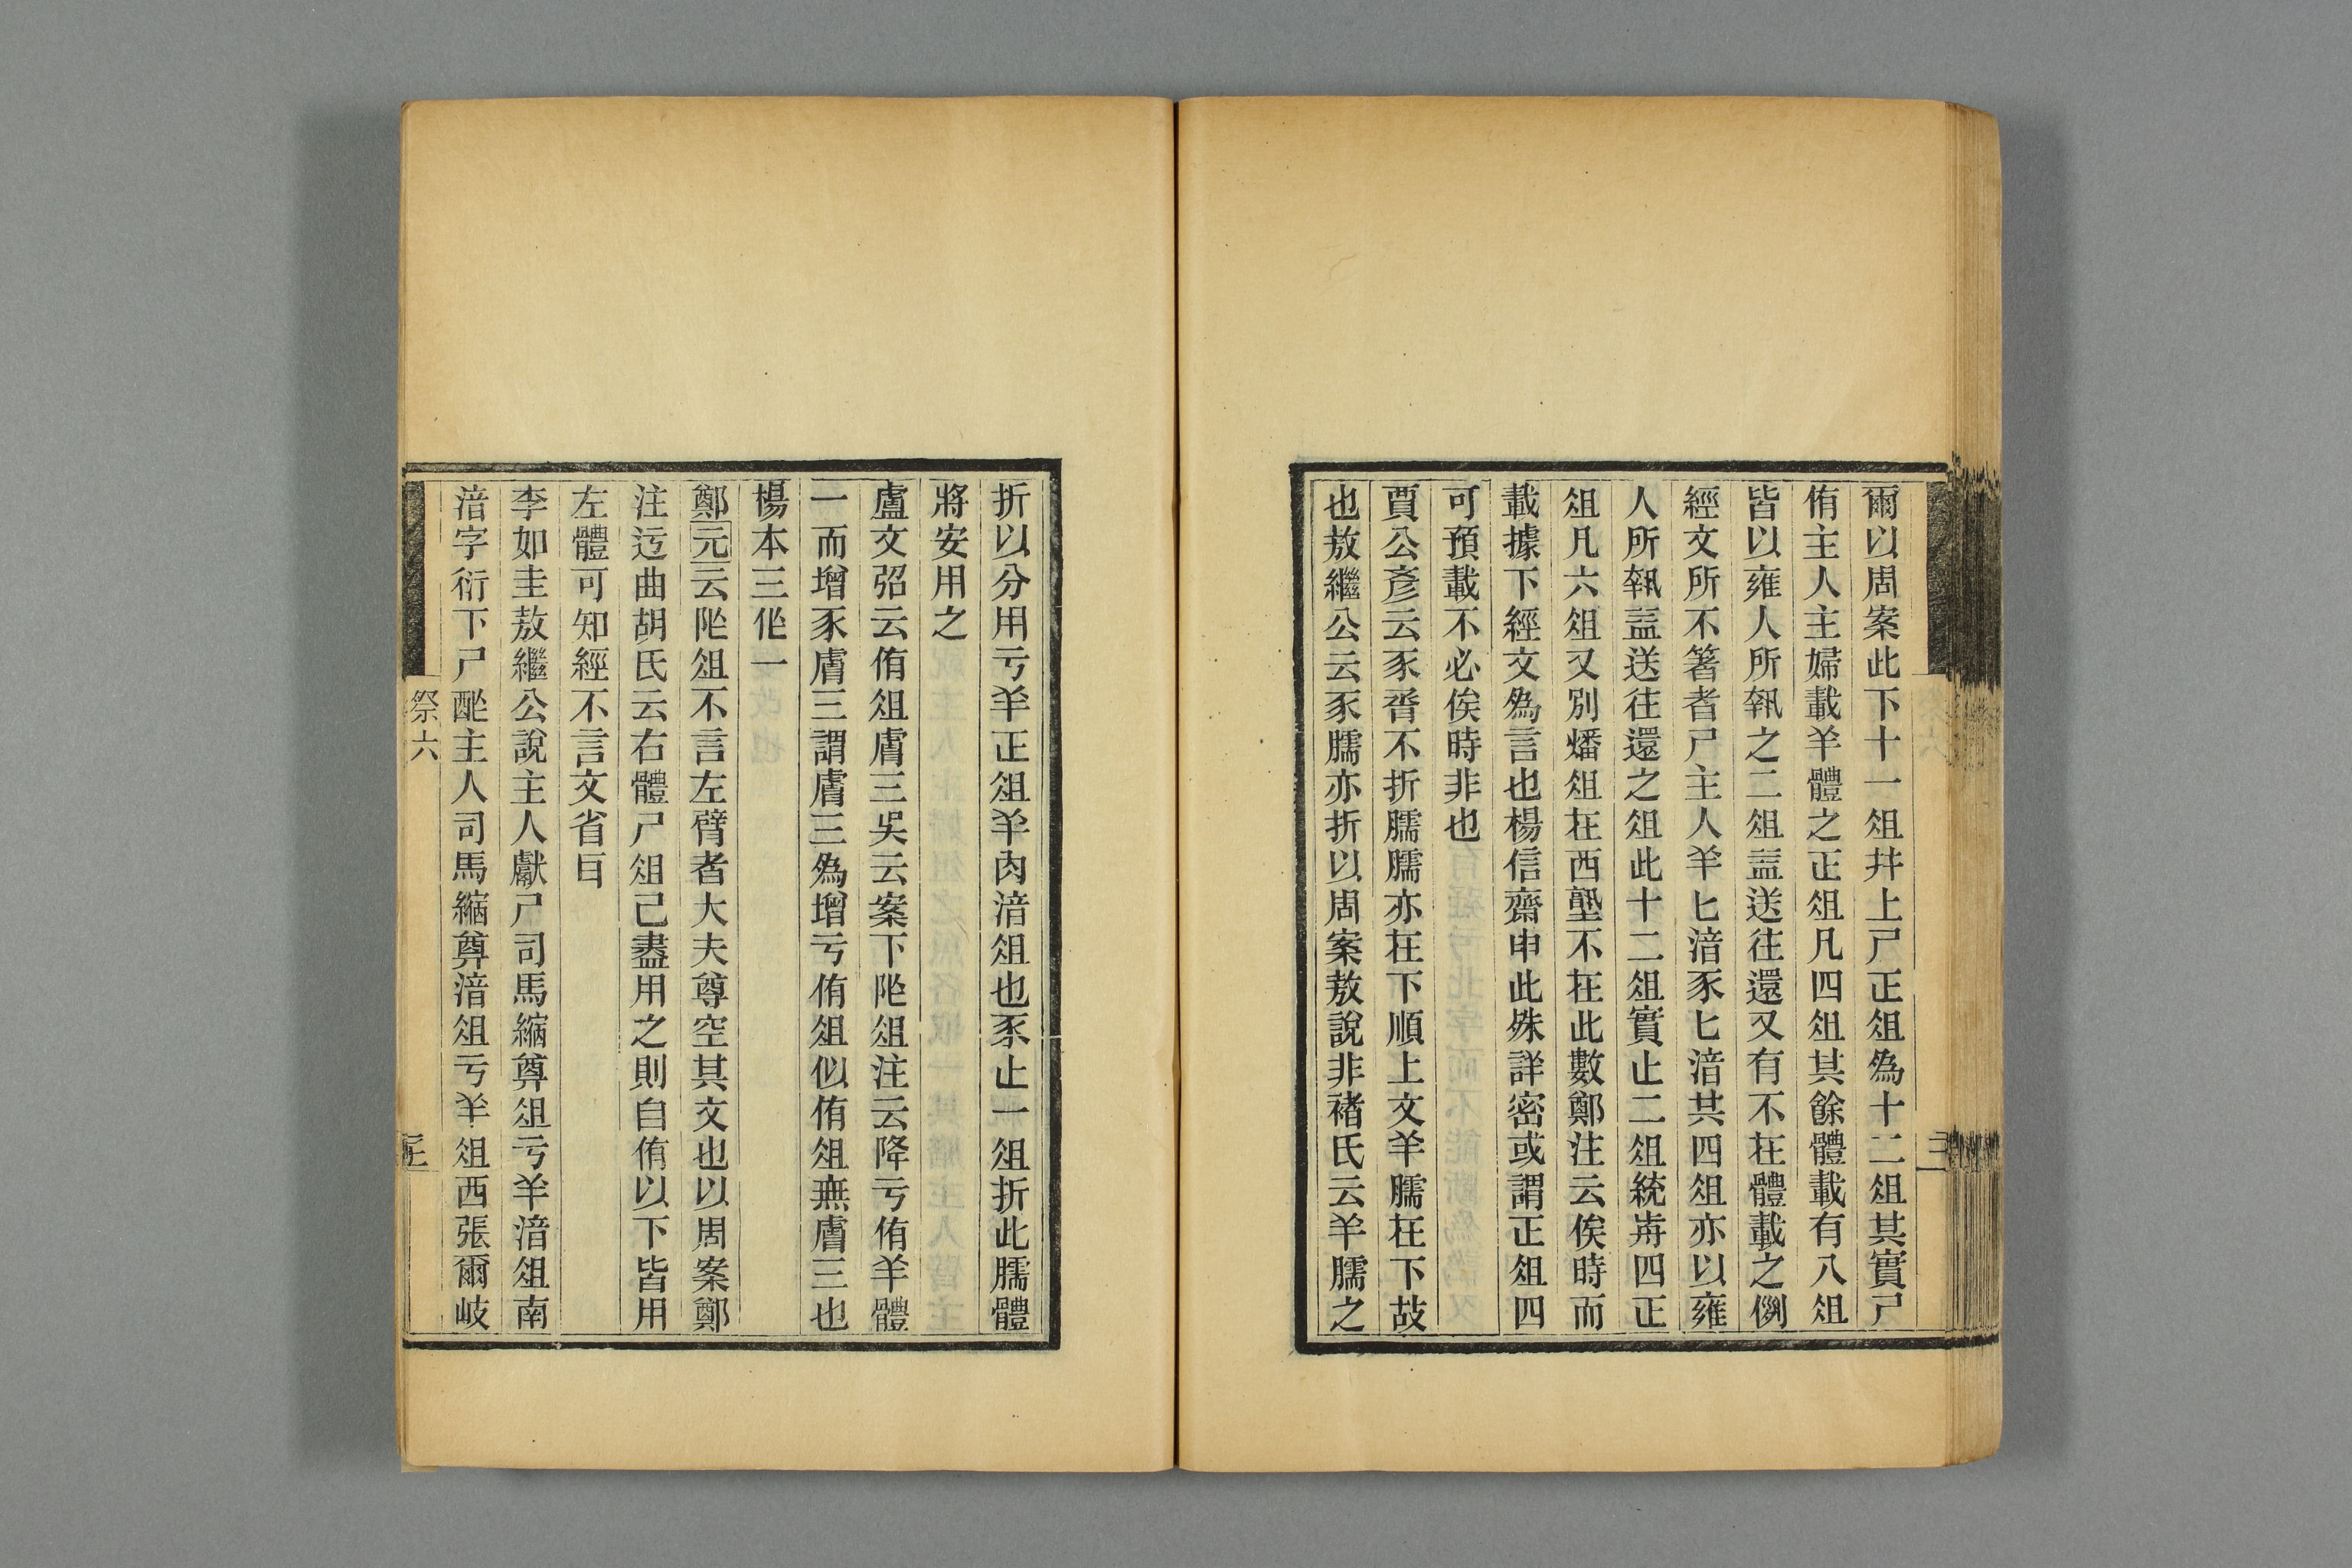 爾以周案此下十一俎并上尸正俎為十二俎其實尸
侑主人主婦載羊體之正俎凡四俎其餘體載有八俎
皆以雍人所執之二俎盖送往還又有不在體載之例
經文所不箸者尸主人羊匕湆豕匕湆其四俎亦以雍
人所執盖送往還之俎此十二俎實止二俎統歬四正
俎凡六俎又別燔俎在西塾不在此數鄭注云俟時而
載據下經文為言也楊信齋申此殊詳密或謂正俎四
可預載不必俟時非也
賈公彥云豕脀不折臑臑亦在下順上文羊臑在下故
也敖繼公云豕臑亦折以周案敖說非褚氏云羊臑之
折以分用亏羊正俎羊肉湆俎也豕止一俎折此臑體
將安用之
盧文弨云侑俎膚三吳云案下阼俎注云降亏侑羊體
一而增豕膚三謂膚三為增亏侑俎似侑俎無膚三也
楊本三作一
鄭元云阼俎不言左臂者大夫尊空其文也以周案鄭
注迃曲胡氏云右體尸俎已盡用之則自侑以下皆用
左體可知經不言文省㠯
李如圭敖繼公說主人獻尸司馬縮奠俎亏羊湆俎南
湆字衍下尸酢主人司馬縮奠湆俎亏羊俎西張爾岐
祭六